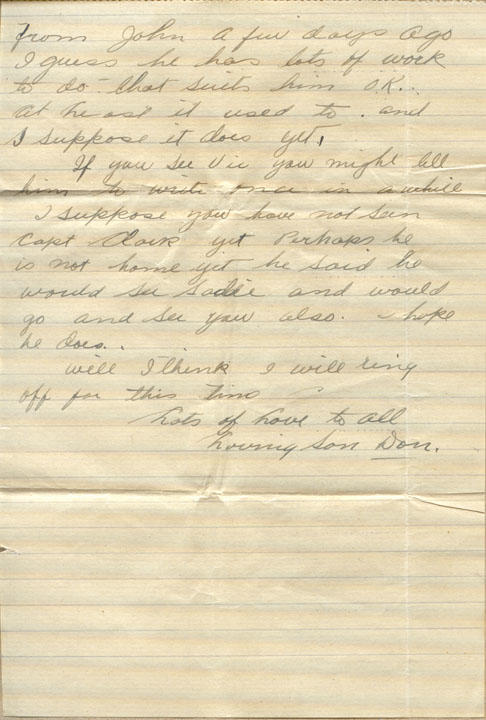 From John a few days ago
I guess he has lots of work
to do that suits him O.K..
at least it used to. and
I suppose it does yet,
If you see Vic you might tell
him to write once in awhile
I suppose you have not seen
Capt Clark yet Perhaps he
is not home yet he said he
would see Sadie and would
go and see you also. I hope
he does..
well I think I will ring
off for this time
Lots of Love to all
Loving Son Don.